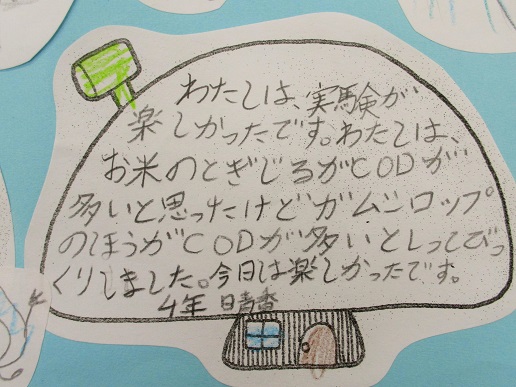 わたしは、実験が
楽しかったです。わたしは、
お米のとぎじるがCODが
多いと思ったけどガムシロップ
のほうがCODが多いとしってびっ
くりしました。今日は楽しかったです。
4年 晴香